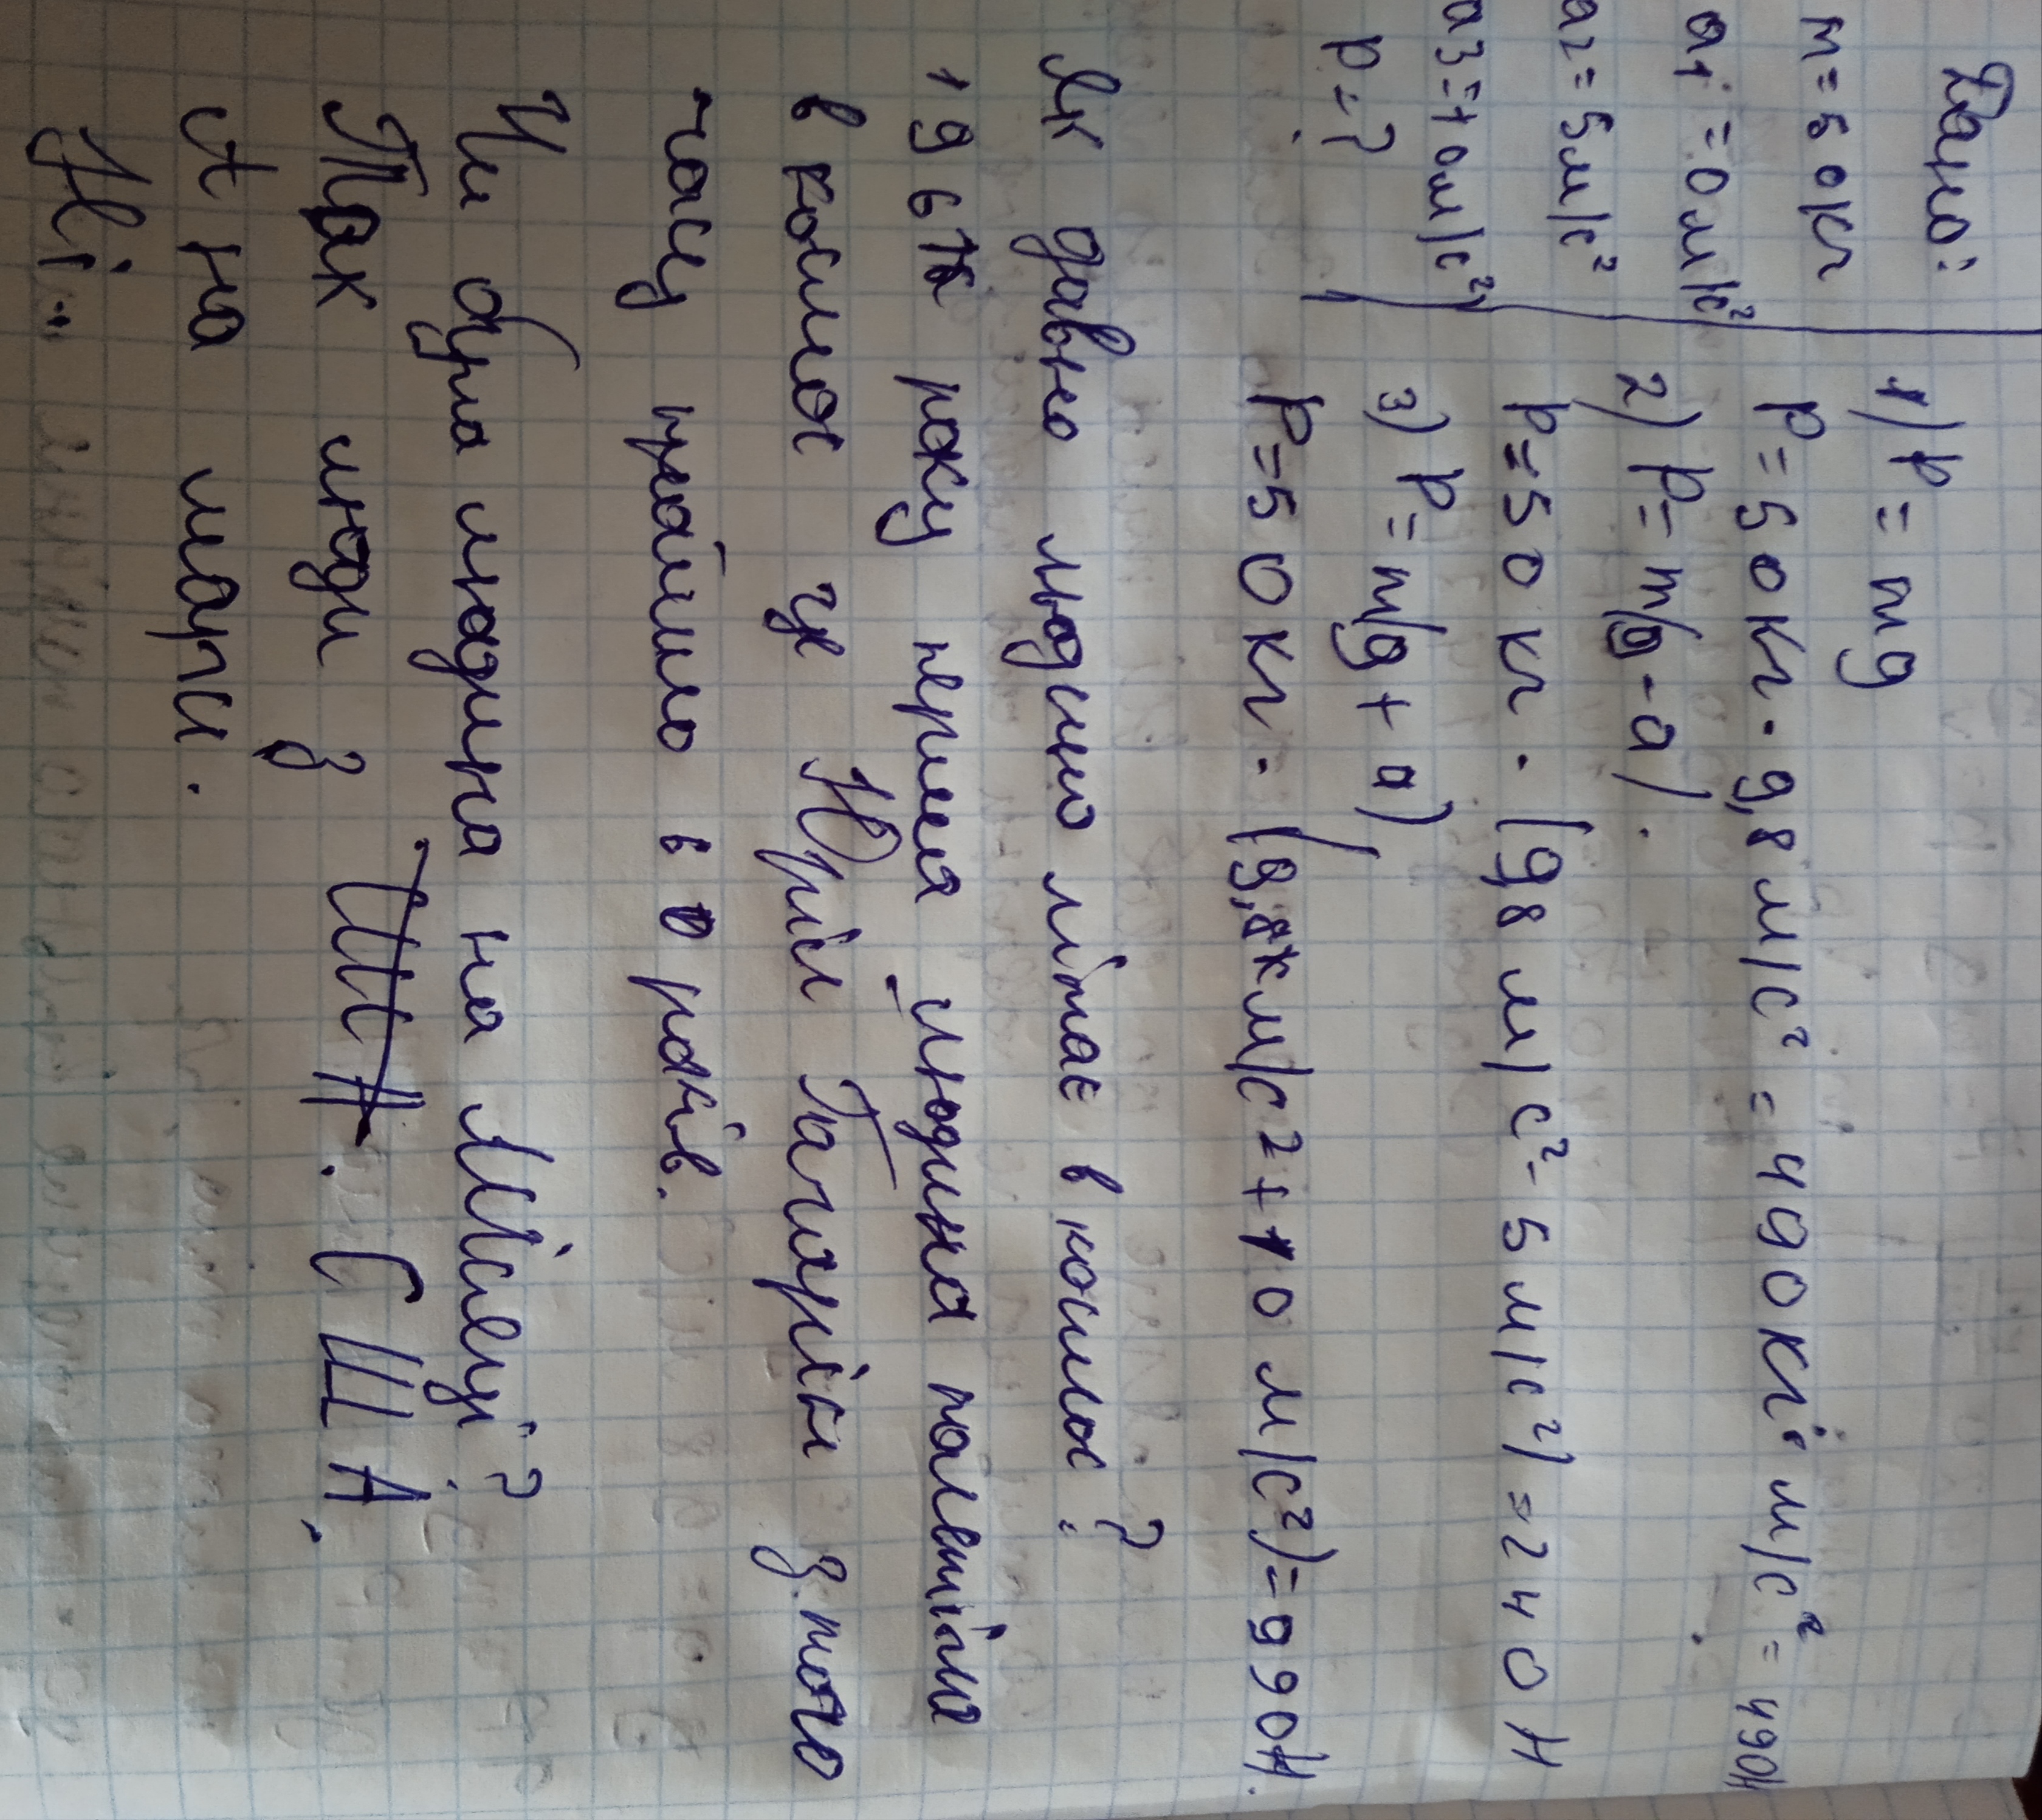 Дано:
m = 50кг
a1 = 0м/с²
a2 = 5м/с²
a3 = 10м/с²
p - ?
1) p = mg
p = 50кг · 9,8 м/с² = 490кг · м/с² = 490Н
2) p = m(g - a).
p = 50 кг · (9,8 м/с² - 5 м/с²) = 240 Н
3) p = m(g + a)
P = 50кг · (9,8 м/с2 + 10 м/с²) = 990Н.
Як давно людино літає в космос?
1961 року перша людина полетіла
в космос це Юрій Гагарін з того
часу пройшло 60 років.
Чи була людина на Місяці?
Так люди з США.
А на марсі.
Ні...